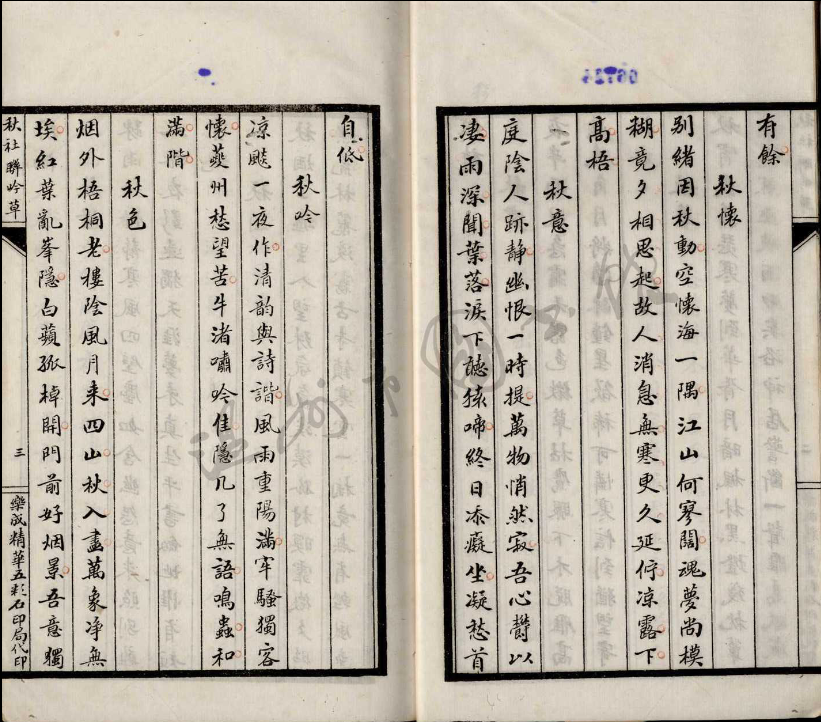 有餘
秋懷
别緒因秋動空懷海一隅江山何寥闊魂夢尚模
糊竟夕相思起故人消息無寒更久延佇凉露下
高梧
秋意
庭陰人跡静幽恨一時提萬物悄然寂吾心鬱以
凄雨深聞葉落淚下聽猿啼終日添癡坐凝愁首
自低
秋吟
凉飈一夜作清韵與詩諧風雨重陽滿牢騷獨客
懷蘷州愁望苦牛渚嘯吟佳隱几了無語鳴蟲和
滿階
秋色
烟外梧桐老樓陰風月来四山秋入畫萬象净無
埃紅葉亂峯隱白蘋孤棹開門前好烟景吾意獨
秋社聯吟草
三
樂成精華五彩石印局代印